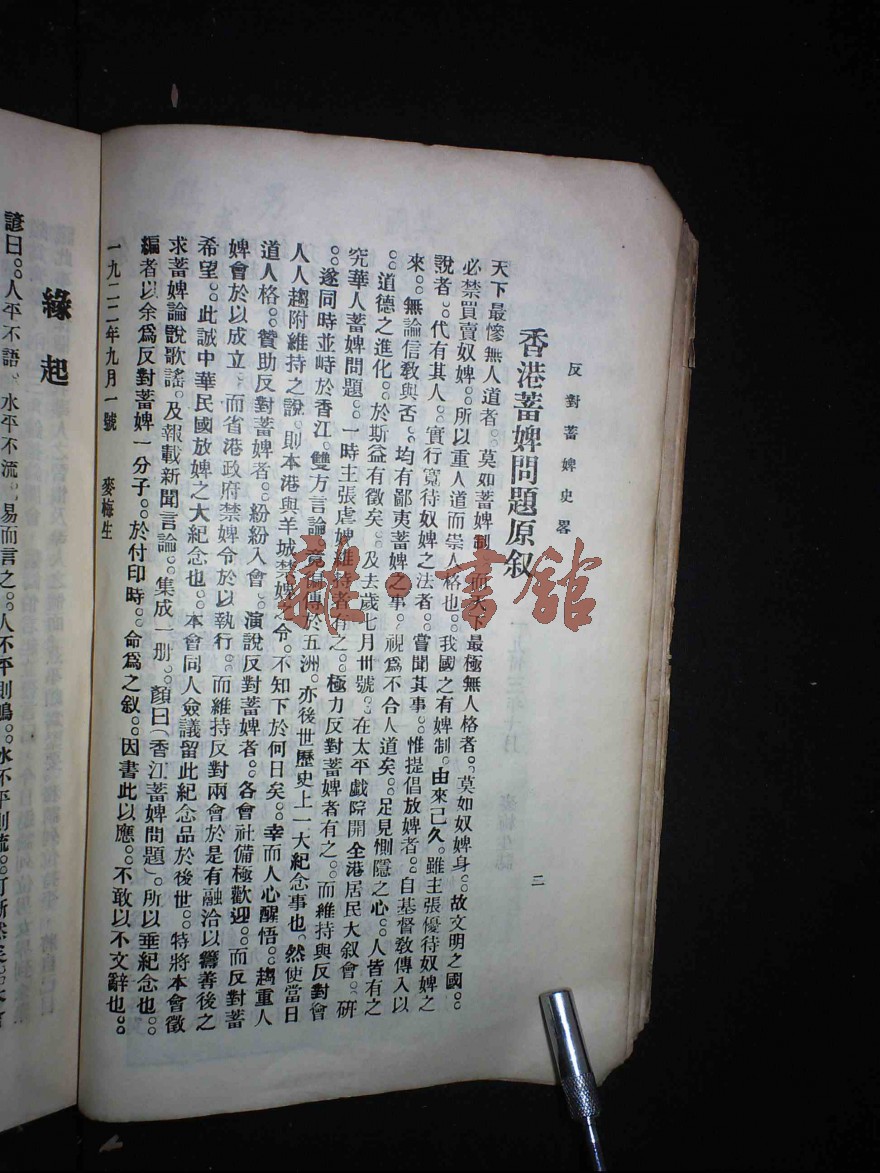 反對蓄婢史畧
二
香港蓄婢問題原叙
天下最慘無人道者。莫如蓄婢制。而天下最極無人格者。莫如奴婢身。故文明之國。
必禁買賣奴婢。所以重人道而崇人格也。我國之有婢制。由來已久。雖主張優待奴婢之
說者。代有其人。實行寬待奴婢之法者。嘗聞其事。惟提倡放婢者。自基督敎傳入以
來。無論信敎與否。均有鄙夷蓄婢之事。視爲不合人道矣。足見惻隱之心。人皆有之
。道德之進化。於斯益有徵矣。及去歲七月卅號。在太平戲院開全港居民大叙會。硏
究華人蓄婢問題。一時主張虐婢維持者有之。極力反對蓄婢者有之。而維持與反對會
。遂同時並峙於香江。雙方言論。竟徧傳於五洲。亦後世歷史上一大紀念事也。然使當日
人人趨附維持之說。則本港與羊城禁婢之令。不知下於何日矣。幸而人心醒悟。趨重人
道人格。贊助反對蓄婢者。紛紛入會。演說反對蓄婢者。各會社備極歡迎。而反對蓄
婢會於以成立。而省港政府禁婢令於以執行。而維持反對兩會於是有融洽以籌善後之
希望。此誠中華民國放婢之大紀念也。本會同人僉議留此紀念品於後世。特將本會徵
求蓄婢論說歌謠。及報載新聞言論。集成一册。顏曰（香江蓄婢問題）。所以垂紀念也。
編者以余爲反對蓄婢一分子。於付印時。命爲之叙。因書此以應。不敢以不文辭也。
一九二二年九月一號　麥梅生
緣起
諺曰。人平不語。水平不流。易而言之。人不平則鳴。水不平則流。可斷然矣
雜·書館